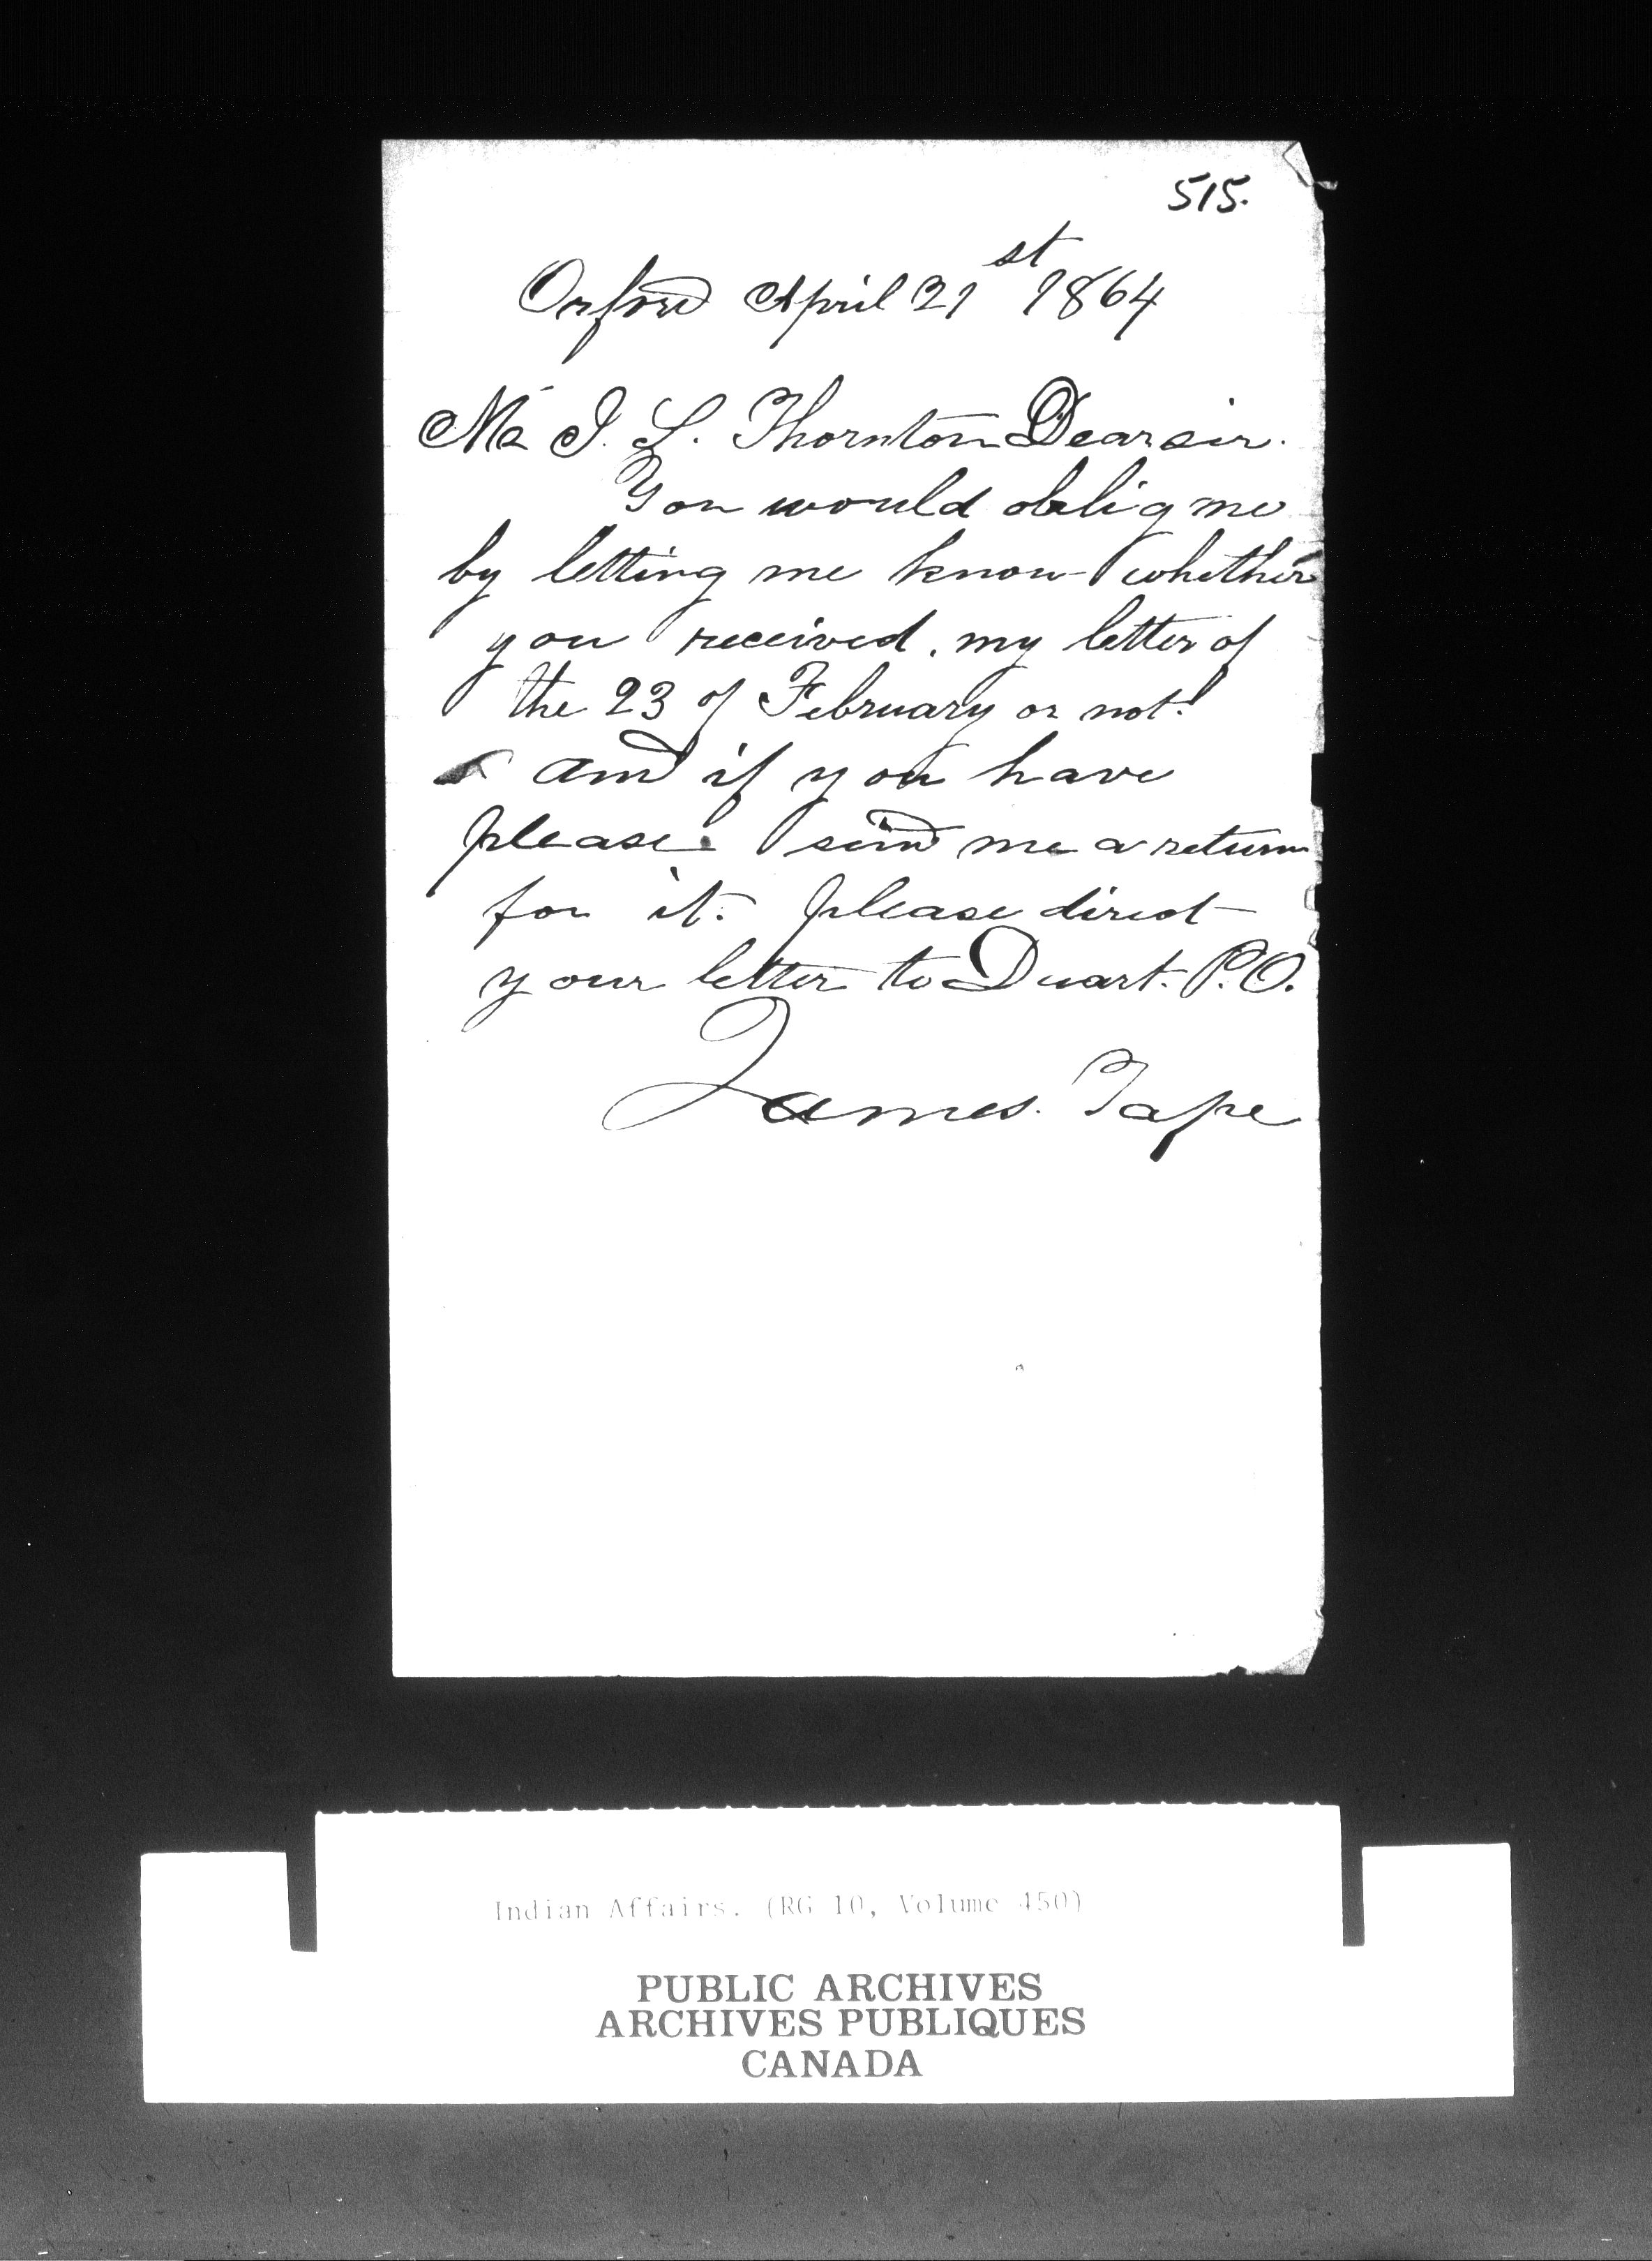 515.
Orford April 21st 1864
Mr J. L. Thornton Dear sir.
You would oblig me
by letting me know whether
you received. my letter of
the 23 of February or not.
and if you have
please send me a return
for it. please direct
your letter to Duart. P.O.
James. Tape
Indian Affairs. (RG 10, Volume 450)
PUBLIC ARCHIVES
ARCHIVES PUBLIQUES
CANADA